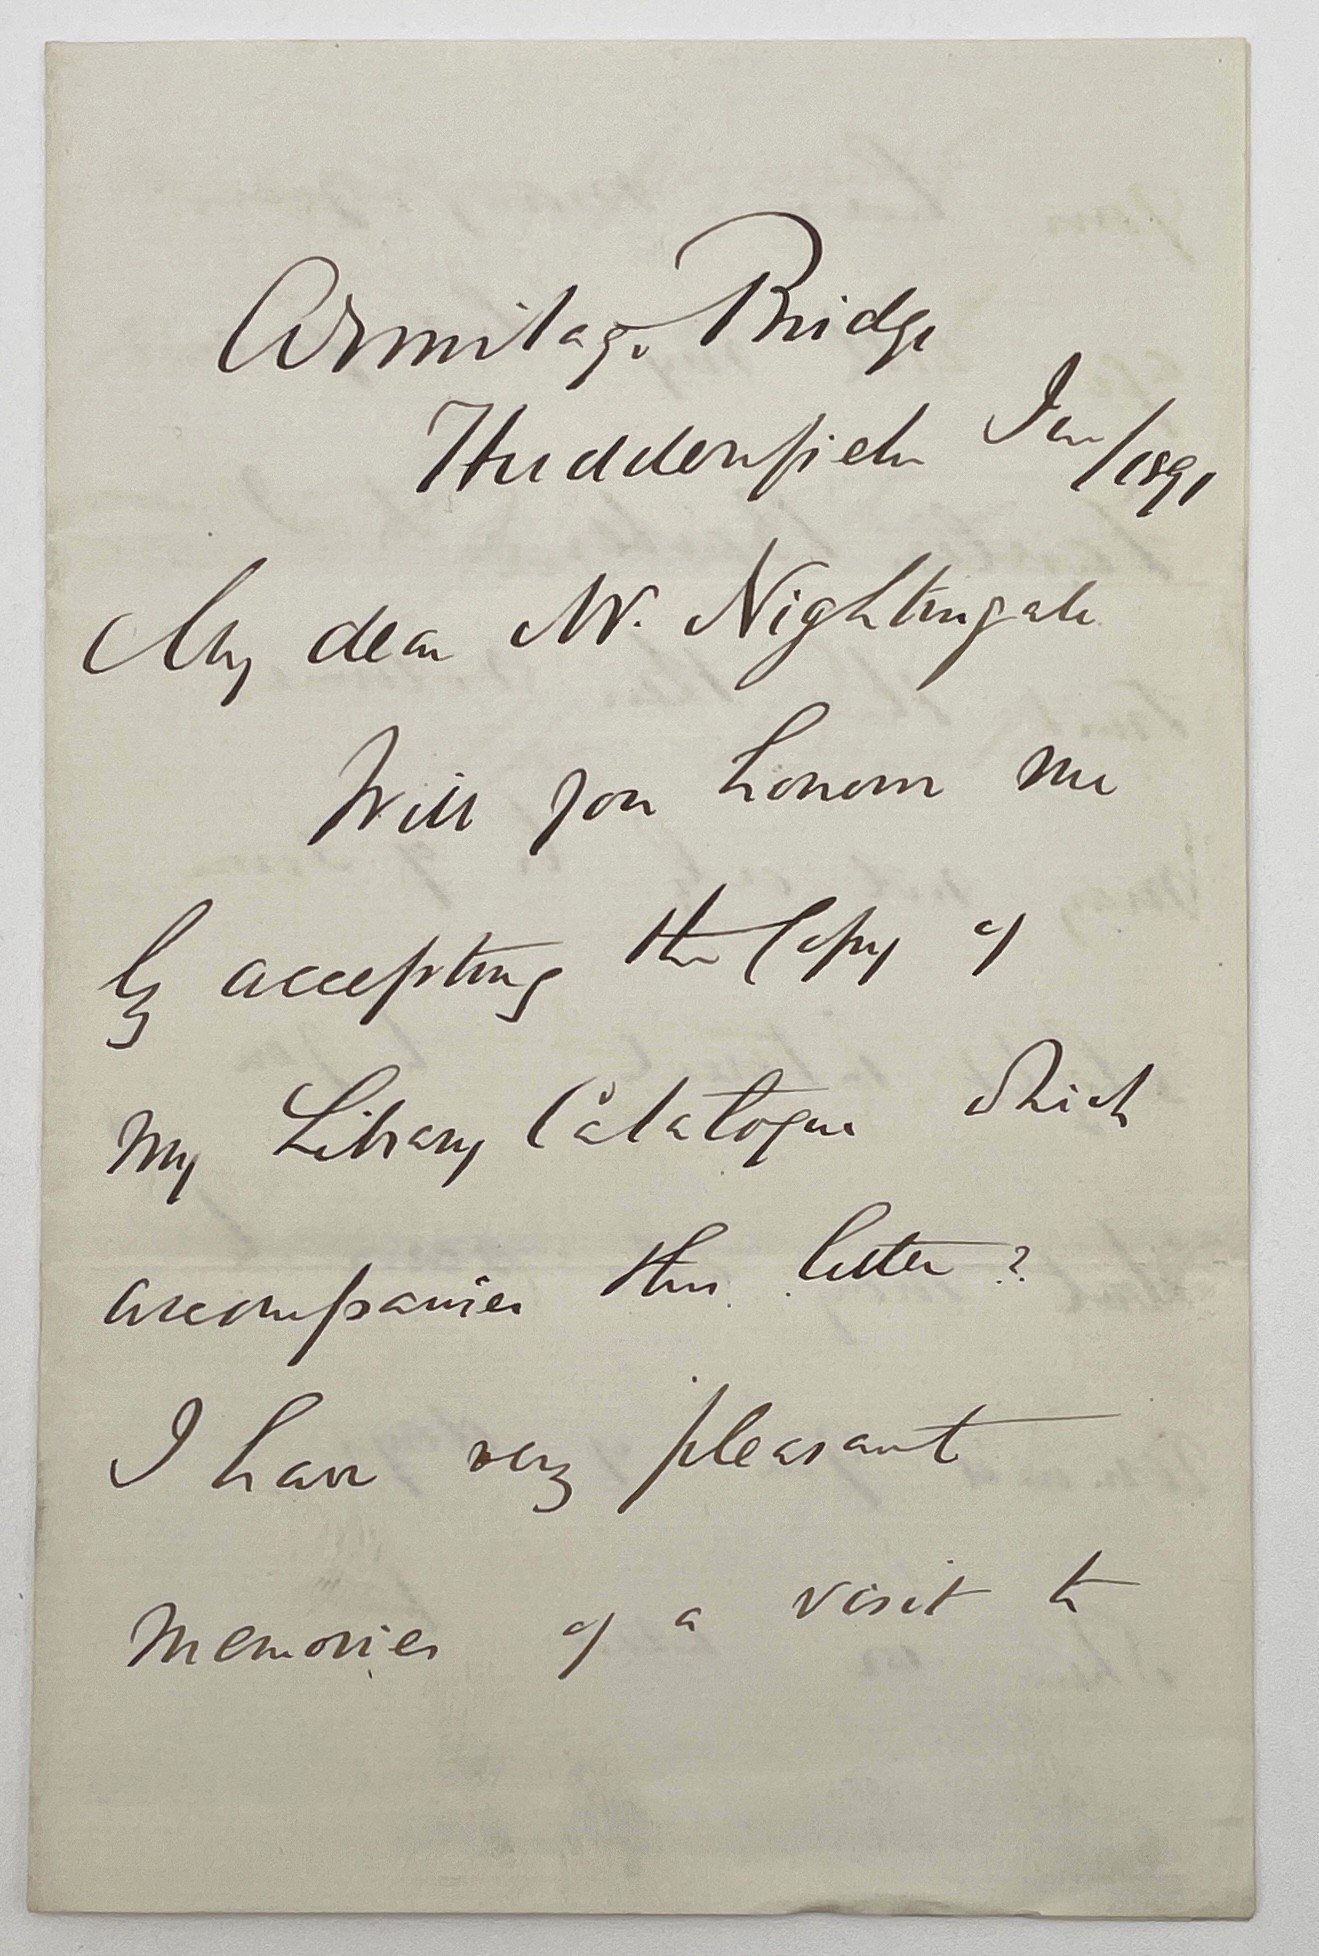 Armitage Bridge
Huddersfield Jan/1891
My dear Mr. Nightingale
Will you honour me
by accepting the Copy of
my Library Catalogue which
accompanies this letter?
I have very pleasant
memories of a visit to